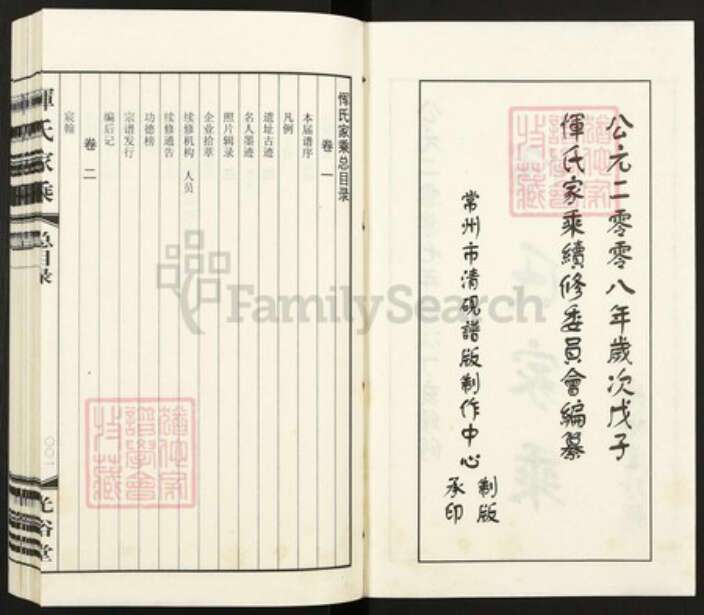 公元二零零八年歲次戊子
惲氏家乘續修委員會編纂
常州市清硯譜版制作中心
制版
承印
恽氏家乘总目录
卷一
本届谱序
凡例
遗址古迹
名人墨迹
照片辑录
企业拾萃
续修机构 人员
续修通告
功德榜
宗谱发行
编后记
卷二
宸翰
惲氏家乘
总目录
〇〇一
光裕堂
FamilySearch